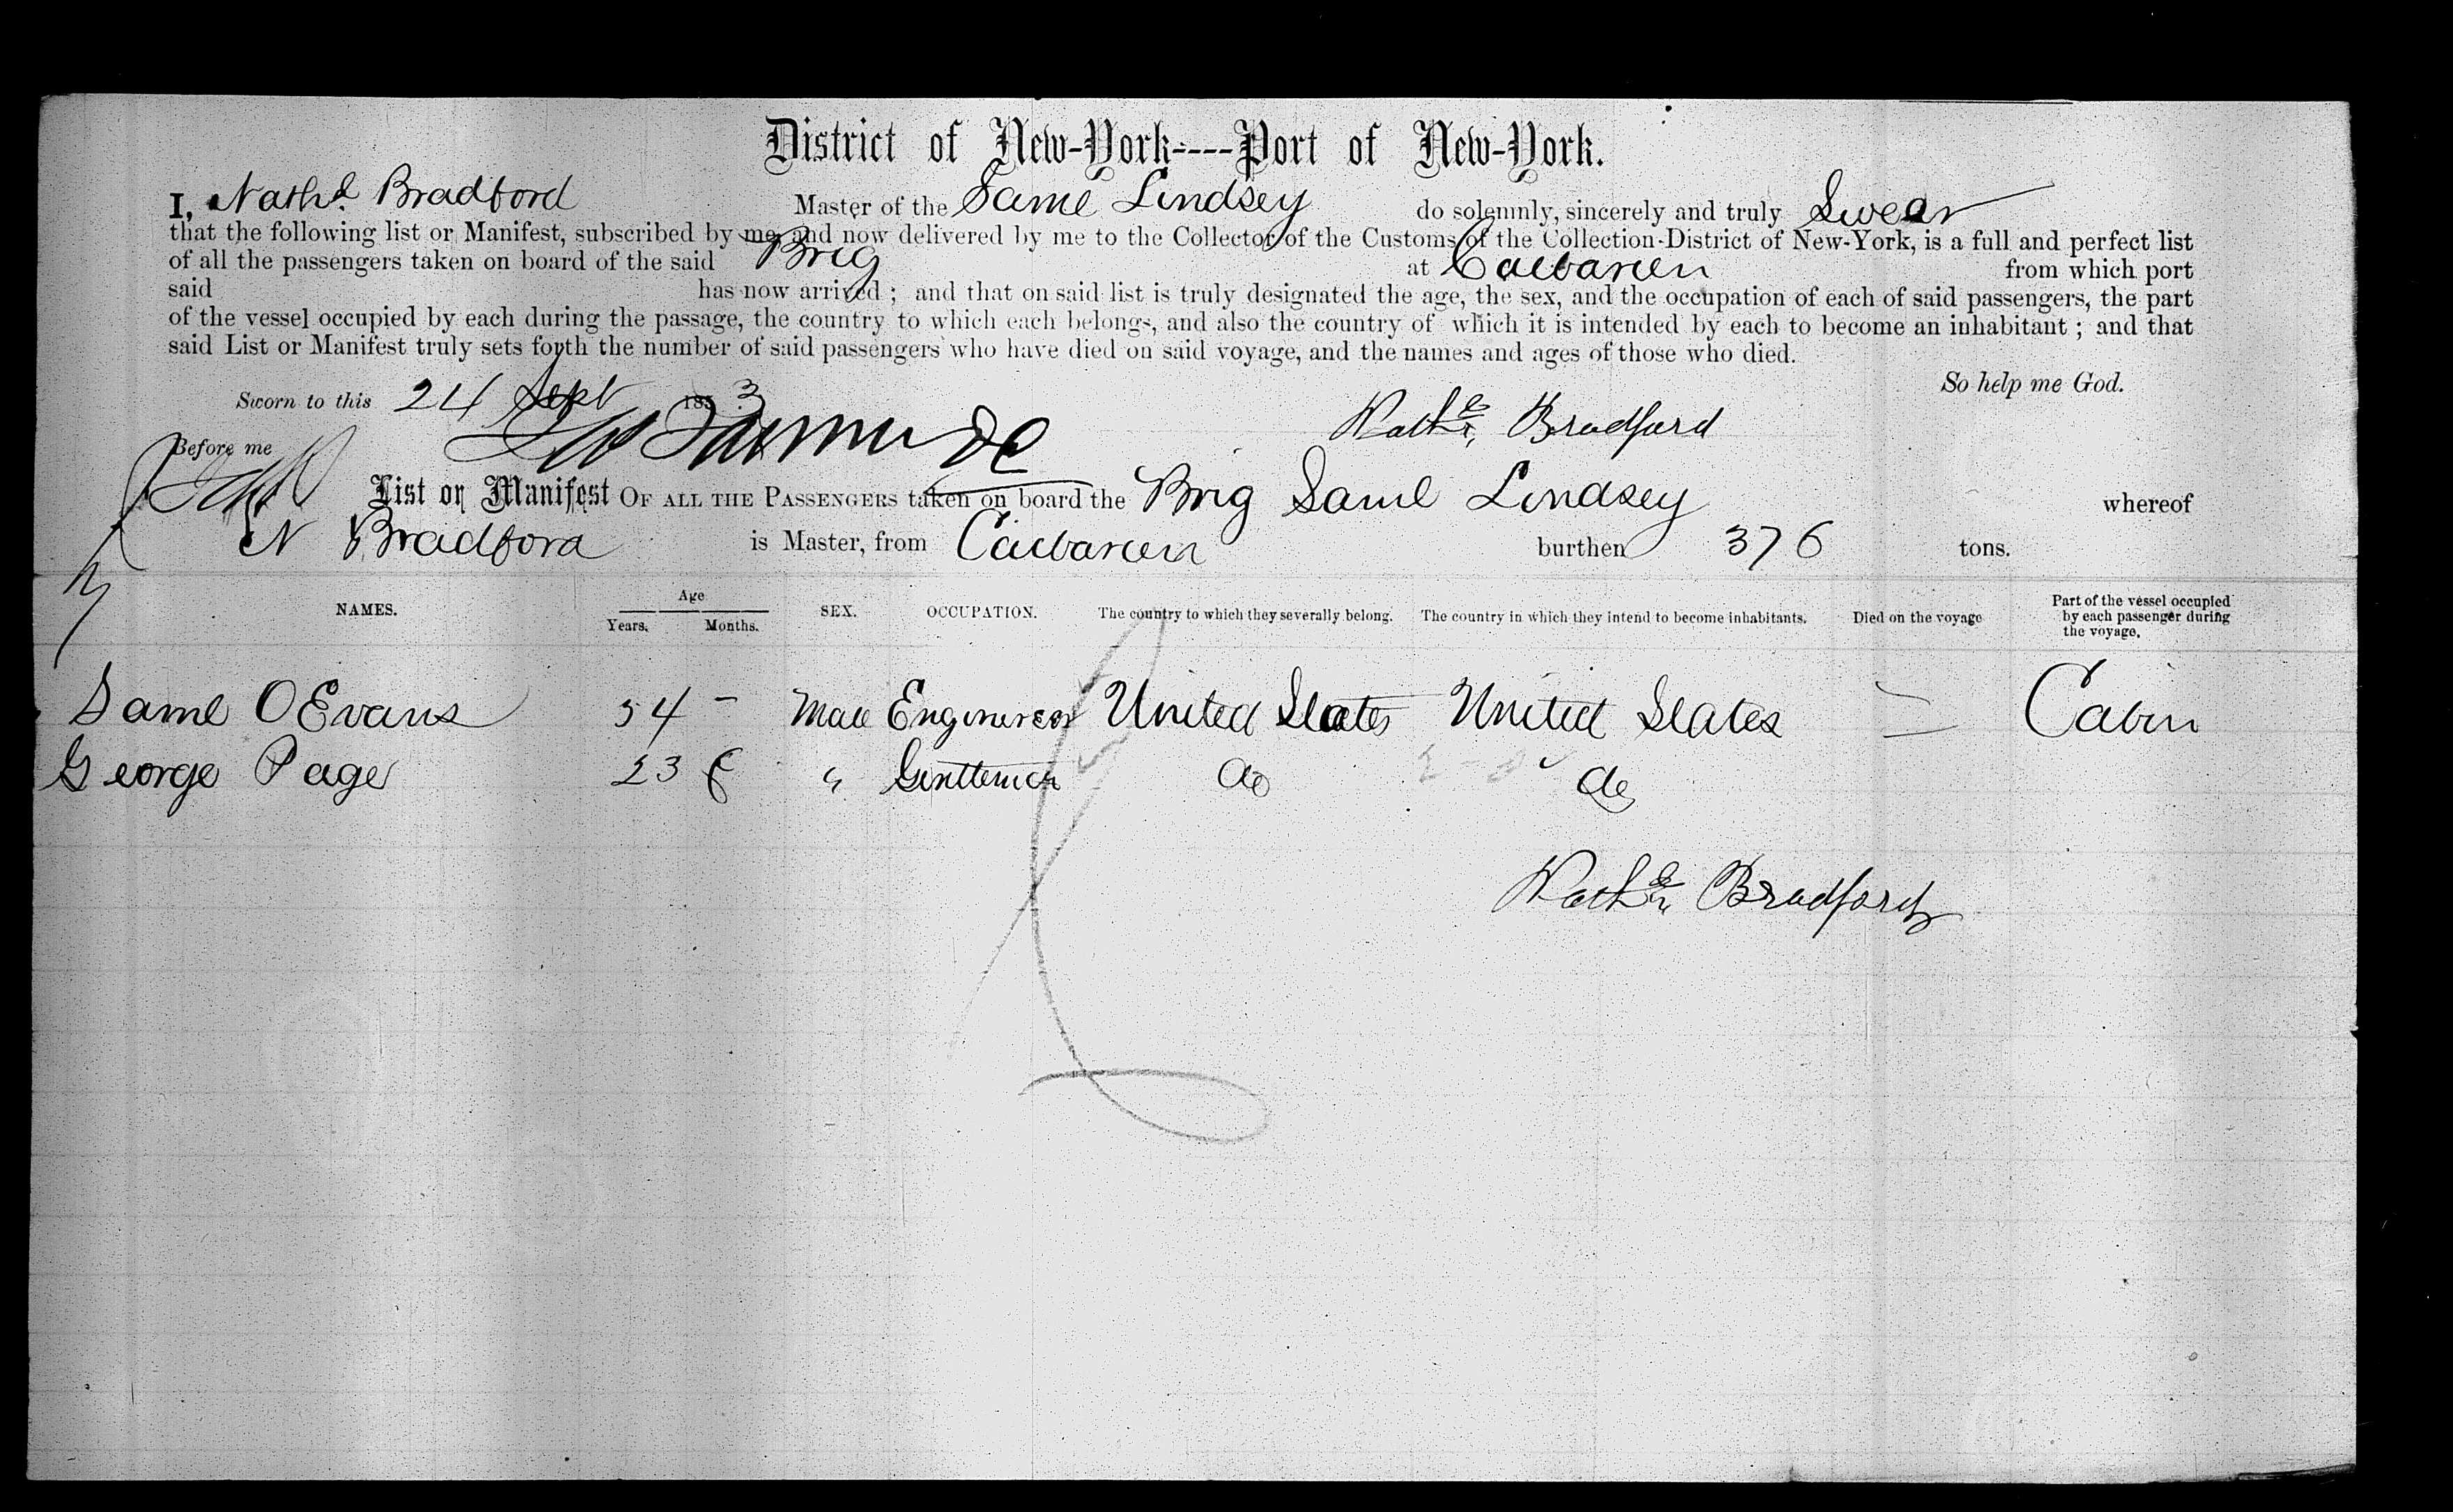 District of New-York----Port of New-York.
I, Nathl Bradford Master of the Saml Lindsey do solemnly, sincerely and truly Swear
that the following list or Manifest, subscribed by me and now delivered by me to the Collector of the Customs of the Collection-District of New-York, is a full and perfect list
of all the passengers taken on board of the said Brig at Caibarien from which port
said has now arrived; and that on said list is truly designated the age, the sex, and the occupation of each of said passengers, the part
of the vessel occupied by each during the passage, the country to which each belongs, and also the country of which it is intended by each to become an inhabitant; and that
said List or Manifest truly sets forth the number of said passengers who have died on said voyage, and the names and ages of those who died.
So help me God.
Sworn to this 24 Sept 1853
Bradford
Before me
List or Manifest OF ALL THE PASSENGERS taken on board the Brig Saml Lindsey whereof
N Bradford is Master, from Caibarien burthen 376 tons.
NAMES. Age Years. Months. SEX. OCCUPATION. The country to which they severally belong. The country in which they intend to become inhabitants. Died on the voyage Part of the vessel occupied by each passenger during the voyage.
Saml O Evans 54 - Male Engineer United States United States Cabin
George Page 23 " Gentleman do do
Bradford